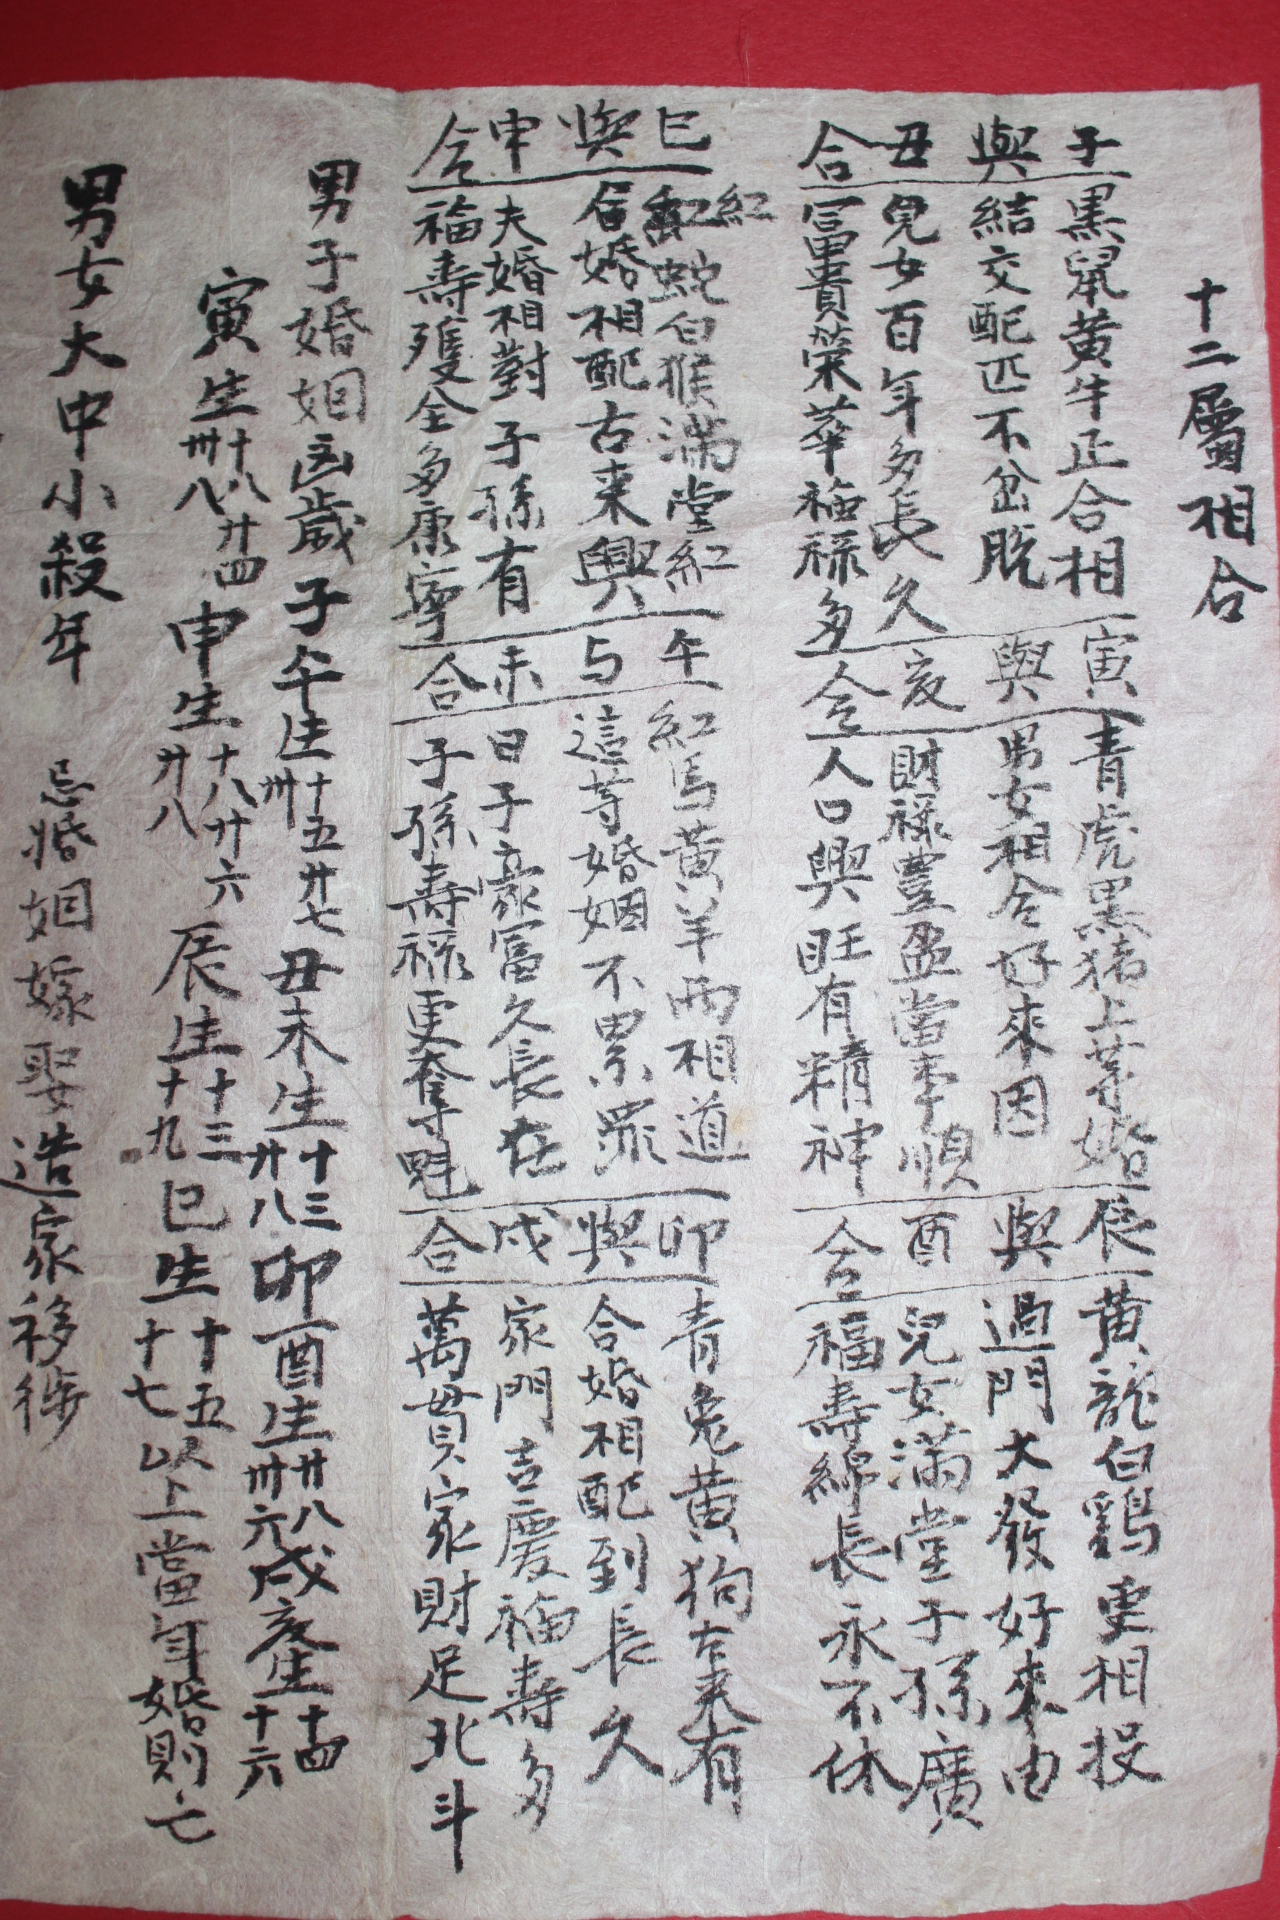 十二屬相合
子與丑合
黑鼠黃牛正合相
結交配匹不岔脫
兒女百年多長久
冨貴榮華福祿多
寅與亥合
青虎黑猪上等婚
男女相合好來因
財祿豊盈當事順
人口興旺有精神
辰與酉合
黃龍白鷄更相投
過門大發好來由
兒女滿堂子孫廣
福壽綿長永不休
巳與申合
紅蛇白猴滿堂紅
合婚相配古来興
夫婚相對子孫有
福壽全多康寧
午与未合
紅馬黃羊兩相道
這等婚姻不累罪
日子豪冨久長在
子孫壽祿更奪魁
卯與戌合
青兔黃狗古来有
合婚相配到長久
家門吉慶福壽多
萬貫家財足北斗
男子婚姻凶歲 子午生十五廿七卅 丑未生十三廿八 卯酉生廿八卅六 戌亥生十四十六
寅生十八廿四卅八 申生十八廿六廿八 辰生十三十九 巳生十五十七以上當年婚則亡
男女大中小殺年 忌婚姻嫁娶造家移徙